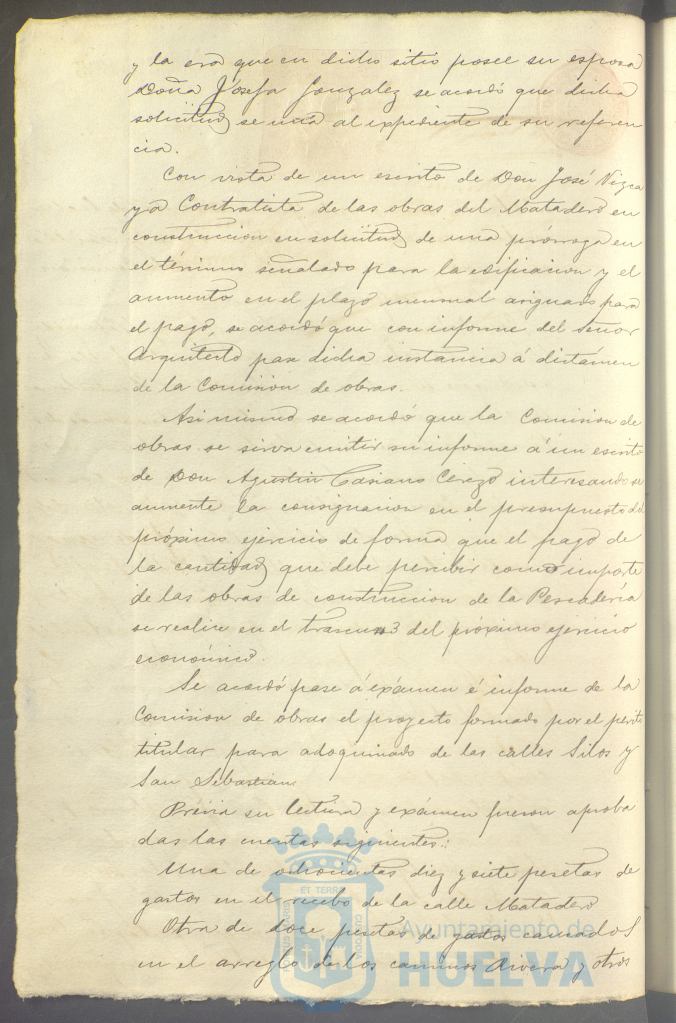 y la era que en dicho sitio posee su esposa
Doña Josefa Gonzalez se acordó que dicha
solicitud se una al expediente de su referen
cia.
Con vista de un escrito de Don José Vizca
ya Contratista de las obras del Matadero en
construccion en solicitud de una prórroga en
el término señalado para la edificacion y el
aumento en el plazo mensual asignado para
el pago, se acordó que con informe del Señor
Arquitecto pase dicha instancia á dictámen
de la Comisión de obras.
Asi mismo se acordó que la Comision de
obras se sirva emitir su informe á un escrito
de Don Agustin Casiano Cerezo interesando se
aumente la consignacion en el presupuesto del
próximo ejercicio de forma que el pago de
la cantidad que debe percibir como importe
de las obras de construccion de la Pescadería
se realice en el del próximo ejercicio
económico.
Se acordó pase á exámen é informe de la
Comision de obras el proyecto formado por el perito
titular para adoquinado de las calles Silos y
San Sebastian.
Prévia su lectura y exámen fueron aproba
das las cuentas siguientes:
Una de ochocientas diez y siete pesetas de
gastos en el recebo de la calle Matadero
Otra de doce pesetas de gastos causados
en el arreglo de los caminos Rivera y otros
ET TERRÆ
Ayuntamiento de
HUELVA